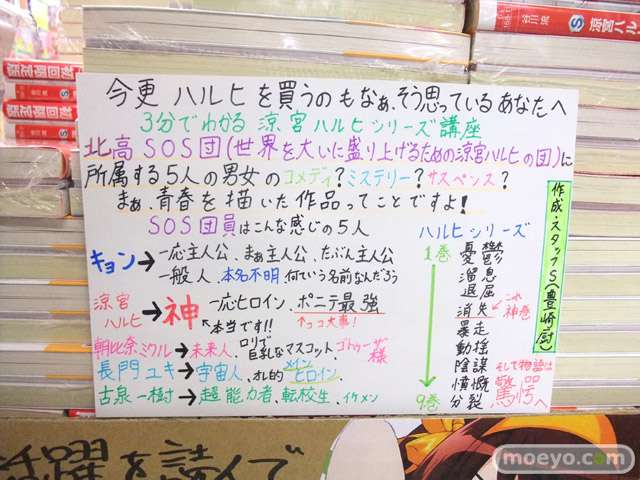 谷川流
涼宮ハル
今更 ハルヒ を買うの もなぁ、そう思っている あなたへ
3分でわかる 涼宮ハルヒシリーズ講座
北高 SOS団(世界を大いに盛り上げるための涼宮ハルヒの団)に
所属する5人の男女のコメディ?ミステリー?サスペンス?
まぁ、青春を描いた作品ってことですよ!
SOS団員はこんな感じの5人
キョン→一応主人公、まぁ主人公、たぶん主人公
一般人、本名不明、何ていう名前なんだろう
涼宮ハルヒ→神 一応ヒロイン、ポニテ最強
↖本当です!! ↑ココ大事!
朝比奈ミクル→未来人、ロリで巨乳なマスコット、ゴトゥーザ様
長門ユキ→宇宙人、オレ的メインヒロイン、
古泉一樹→超能力者、転校生、イケメン
ハルヒシリーズ
1巻
憂鬱
溜息
退屈
消失 ←これ神巻
暴走
動揺
陰謀
憤慨
9巻 分裂
そして物語は
驚愕へ
作成・スタッフS(豊崎厨)
活躍を読んで
moeyo.com